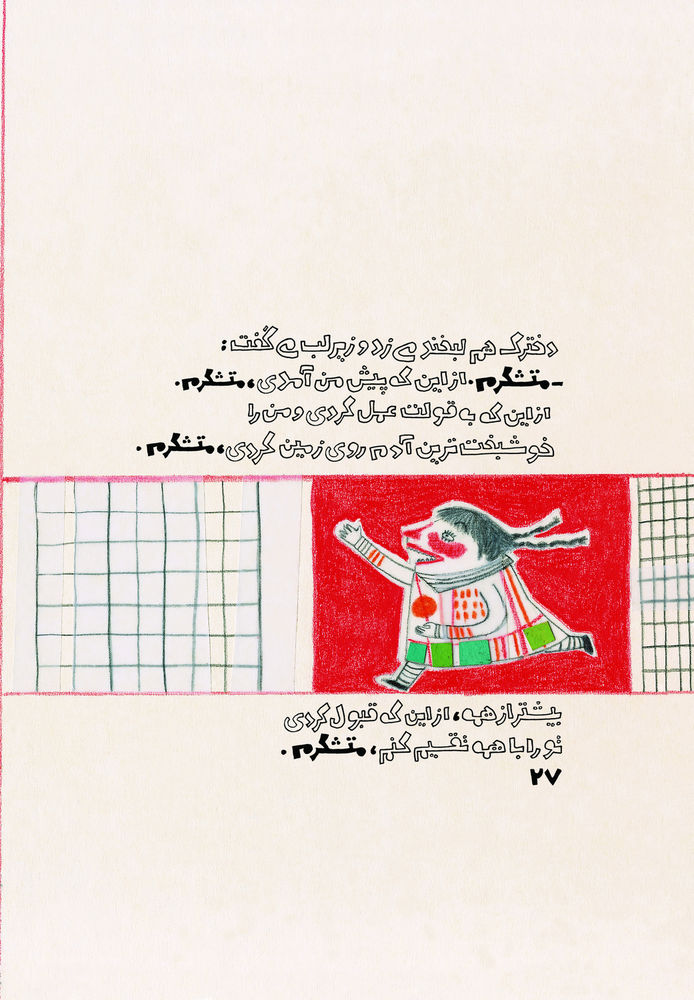 دخترک هم لبخند می زد و زیر لب می گفت:
ـ متشکرم. از این که پیش من آمدی، متشکرم.
از این که به قولت عمل کردی و من را
خوشبخت ترین آدم روی زمین کردی، متشکرم.
بیشتر از همه، از این که قبول کردی
تو را با همه تقسیم کنم، متشکرم.
۲۷